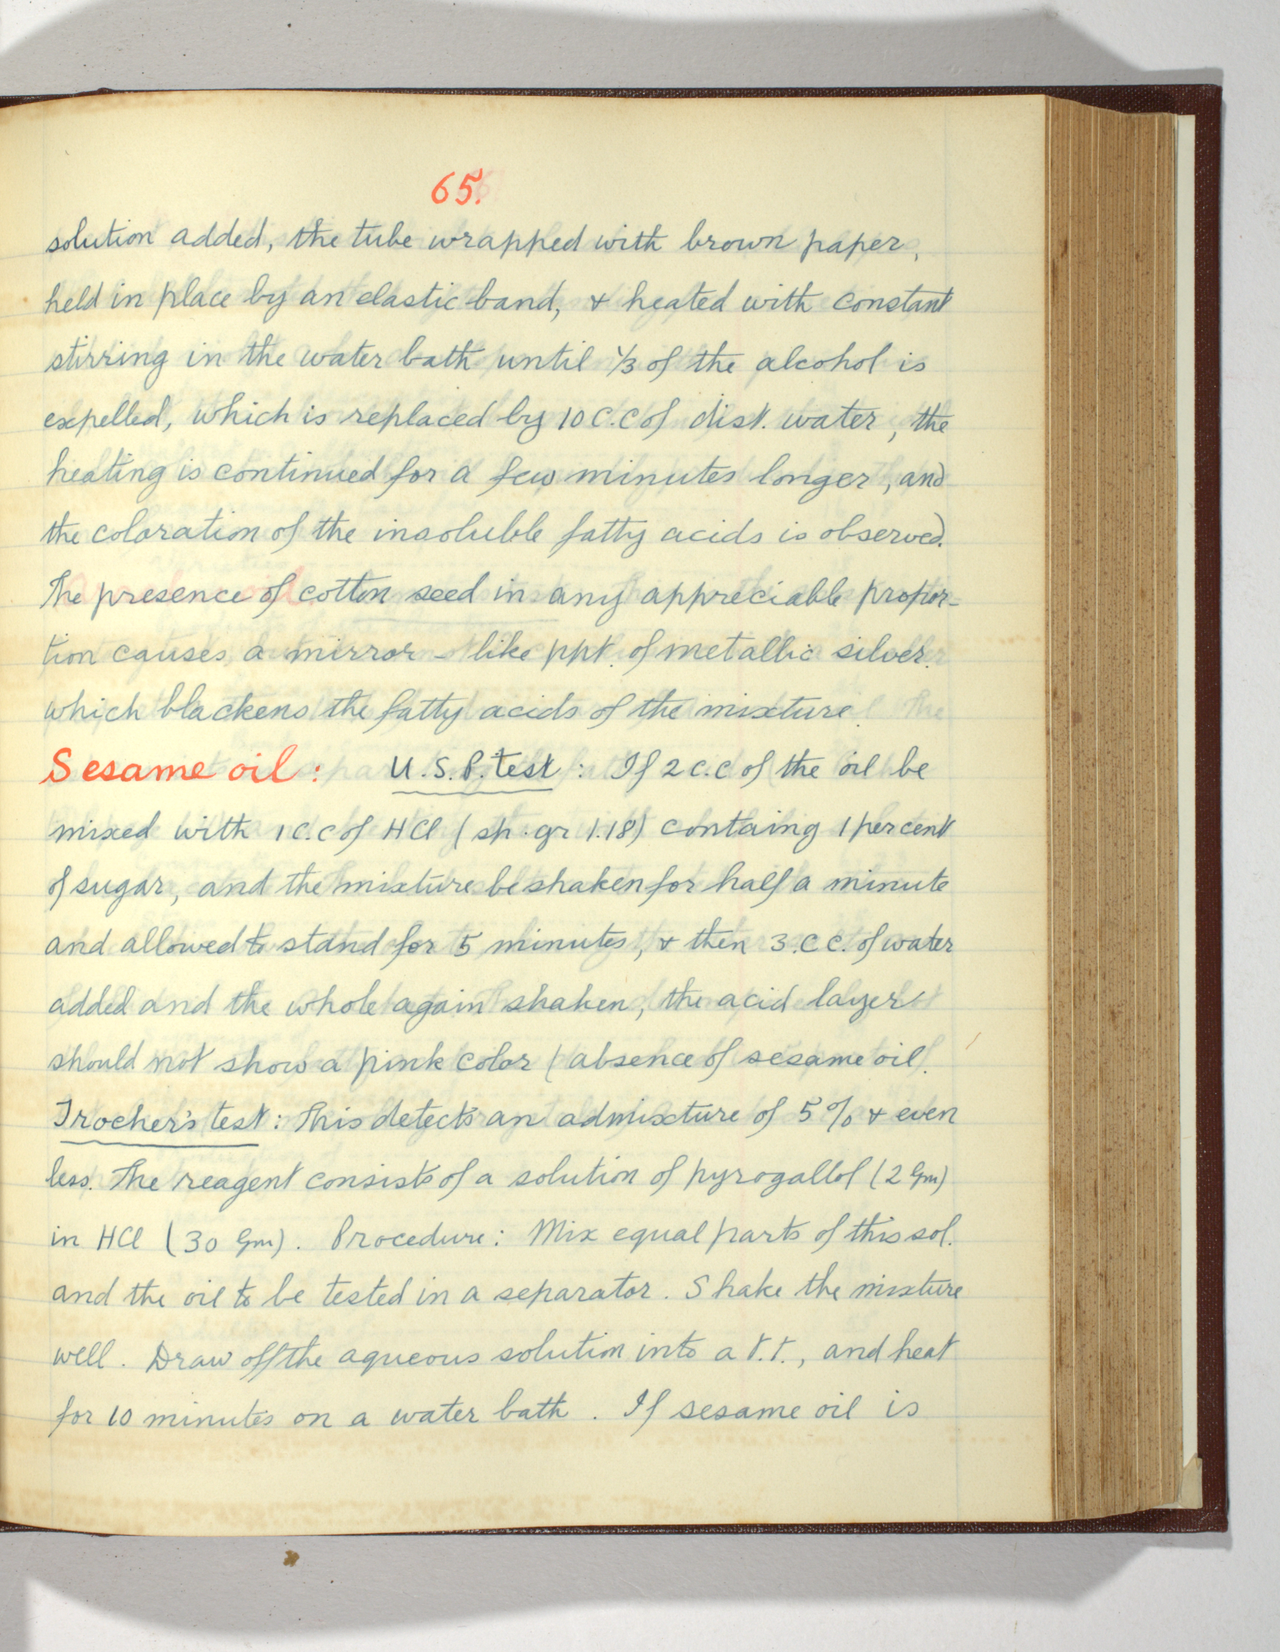 65.
solution added, the tube wrapped with brown paper,
held in place by an elastic band, & heated with constant
stirring in the water bath until 1/3 of the alcohol is
expelled, which is replaced by 10 C.C of dist. water, the
heating is continued for a few minutes longer, and
the coloration of the insoluble fatty acids is observed.
The presence of cotton seed in any appreciable propor-
tion causes a mirror-like ppt. of metallic silver.
which blackens the fatty acids of the mixture.
Sesame oil: U.S.P. test: If 2 C.C of the oil be
mixed with 1 C.C of HCl (sp. gr 1.18) containg 1 per cent
of sugar, and the mixture be shaken for half a minute
and allowed to stand for 5 minutes, & then 3.C C. of water
added and the whole again shaken, the acid layer
should not show a pink color (absence of sesame oil.
Trocher's test: This detects an admixture of 5% & even
less. The reagent consists of a solution of pyrogallol (2 Gm)
in HCl (30 Gm). Procedure: Mix equal parts of this sol.
and the oil to be tested in a separator. Shake the mixture
well. Draw off the aqueous solution into a t.t., and heat
for 10 minutes on a water bath. If sesame oil is